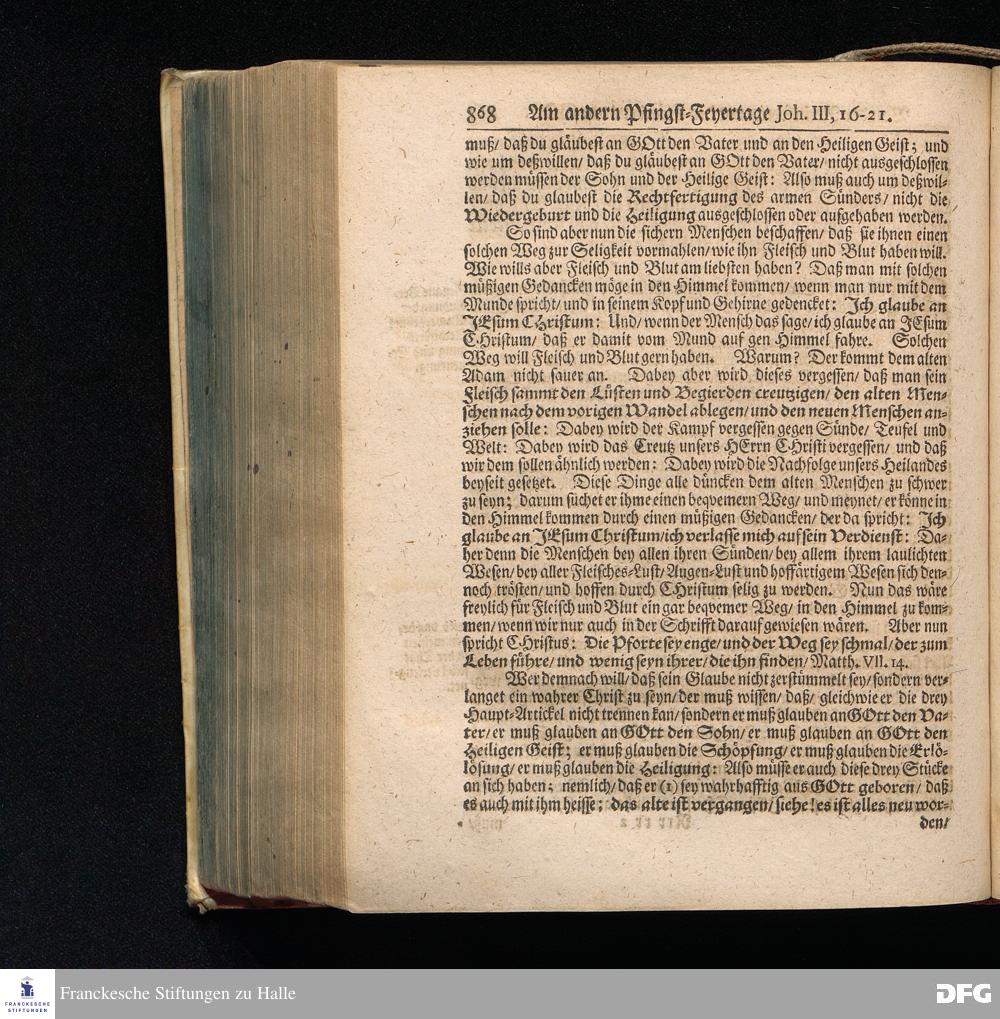 868 Am andern Pfingst-Feyertage Joh. III, 16-21.
muß/ daß du gläubest an GOtt den Vater und an den Heiligen Geist; und
wie um deßwillen/ daß du gläubest an GOtt den Vater/ nicht ausgeschlossen
werden müssen der Sohn und der Heilige Geist: Also muß auch um deßwil-
len/ daß du glaubest die Rechtfertigung des armen Sünders/ nicht die
Wiedergeburt und die Heiligung ausgeschlossen oder aufgehaben werden.
So sind aber nun die sichern Menschen beschaffen/ daß sie ihnen einen
solchen Weg zur Seligkeit vormahlen/ wie ihn Fleisch und Blut haben will.
Wie wills aber Fleisch und Blut am liebsten haben? Daß man mit solchen
müßigen Gedancken möge in den Himmel kommen/ wenn man nur mit dem
Munde spricht/ und in seinem Kopf und Gehirne gedencket: Ich glaube an
JEsum CHristum: Und/ wenn der Mensch das sage/ ich glaube an JEsum
CHristum/ daß er damit vom Mund auf gen Himmel fahre. Solchen
Weg will Fleisch und Blut gern haben. Warum? Der kommt dem alten
Adam nicht sauer an. Dabey aber wird dieses vergessen/ daß man sein
Fleisch sammt den Lüsten und Begierden creutzigen/ den alten Men-
schen nach dem vorigen Wandel ablegen/ und den neuen Menschen an-
ziehen solle: Dabey wird der Kampf vergessen gegen Sünde/ Teufel und
Welt: Dabey wird das Creutz unsers HErrn CHristi vergessen/ und daß
wir dem sollen ähnlich werden: Dabey wird die Nachfolge unsers Heilandes
beyseit gesetzet. Diese Dinge alle düncken dem alten Menschen zu schwer
zu seyn; darum suchet er ihme einen beqvemern Weg/ und meynet/ er könne in
den Himmel kommen durch einen müßigen Gedancken/ der da spricht: Ich
glaube an JEsum Christum/ ich verlasse mich auf sein Verdienst: Da-
her denn die Menschen bey allen ihren Sünden/ bey allem ihrem laulichten
Wesen/ bey aller Fleisches-Lust/ Augen-Lust und hoffärtigem Wesen sich den-
noch trösten/ und hoffen durch CHristum selig zu werden. Nun das wäre
freylich für Fleisch und Blut ein gar beqvemer Weg/ in den Himmel zu kom-
men/ wenn wir nur auch in der Schrifft darauf gewiesen wären. Aber nun
spricht CHristus: Die Pforte sey enge/ und der Weg sey schmal/ der zum
Leben führe/ und wenig seyn ihrer/ die ihn finden/ Matth. VII. 14.
Wer demnach will/ daß sein Glaube nicht zerstümmelt sey/ sondern ver-
langet ein wahrer Christ zu seyn/ der muß wissen/ daß/ gleichwie er die drey
Haupt-Artickel nicht trennen kan/ sondern er muß glauben an GOtt den Va-
ter/ er muß glauben an GOtt den Sohn/ er muß glauben an GOtt den
Heiligen Geist; er muß glauben die Schöpfung/ er muß glauben die Erlö-
lösung/ er muß glauben die Heiligung: Also müsse er auch diese drey Stücke
an sich haben; nemlich/ daß er (1) sey wahrhafftig aus GOtt geboren/ daß
es auch mit ihm heisse; das alte ist vergangen/ siehe! es ist alles neu wor-
den/
FRANCKESCHE
STIFTUNGEN
Franckesche Stiftungen zu Halle
DFG